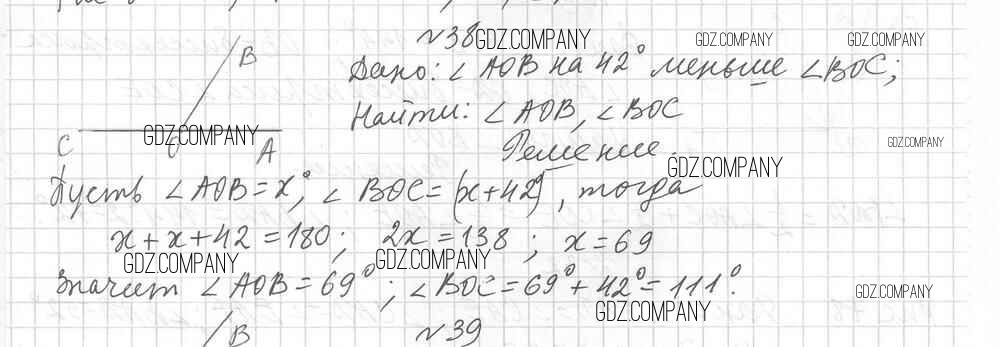 №38
GDZ.COMPANY GDZ.COMPANY GDZ.COMPANY
B
Дано: ∠AOB на 42° меньше ∠BOC;
Найти: ∠AOB, ∠BOC
GDZ.COMPANY
C O A
GDZ.COMPANY
Решение.
GDZ.COMPANY
Пусть ∠AOB = x°, ∠BOC = (x+42)°, тогда
x + x + 42 = 180; 2x = 138; x = 69
GDZ.COMPANY GDZ.COMPANY
Значит ∠AOB = 69°; ∠BOC = 69° + 42° = 111°.
GDZ.COMPANY GDZ.COMPANY
B №39